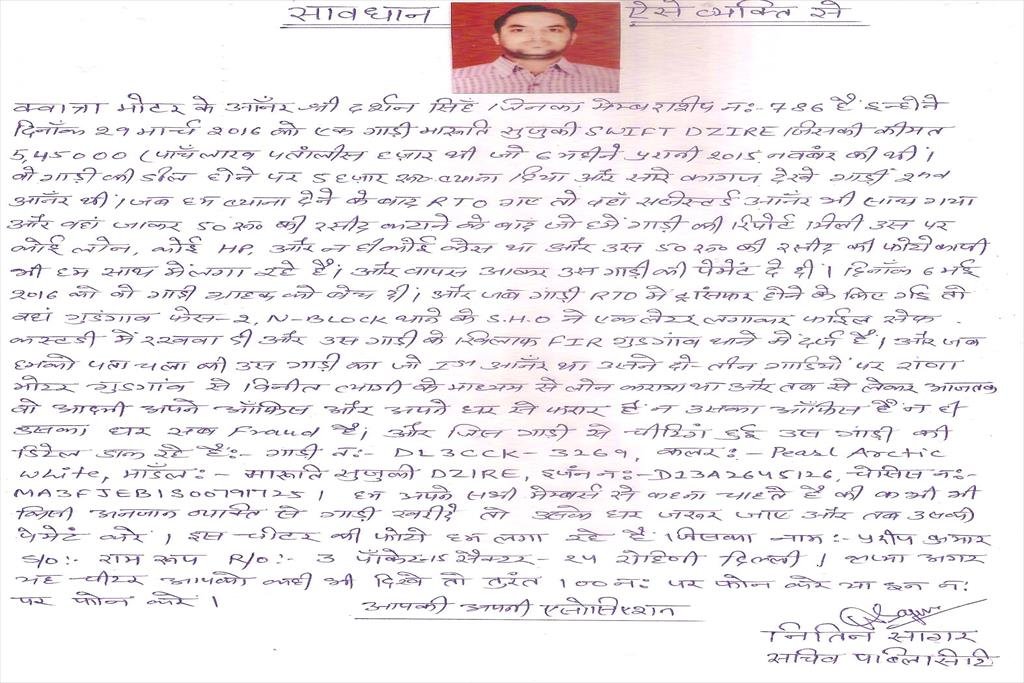 सावधान ऐसे व्यक्ति से
क्वात्रा मोटर के ऑनर श्री दर्शन सिंह जिनका मेम्बरशीप न:- 786 है इन्होने
दिनाँक 29 मार्च 2016 को एक गाड़ी मारूति सुजुकी SWIFT DZIRE जिसकी कीमत
5,45000 (पाँच लाख पतांलीस हजार थी जो 6 महीने पुरानी 2015 नवंबर की थी।
वो गाड़ी की डील होने पर 5 हजार रू० ब्याना दिया और सारे कागज देखे गाड़ी 2nd
ऑनर थी। जब हम ब्याना देने के बाद RTO गए तो वहाँ रजीस्टर्ड ऑनर भी साथ गया
और वहां जाकर 50 रू० की रसीद कटाने के बाद जो हमें गाड़ी की रिपोर्ट मिली उस पर
कोई लोन, कोई HP, और न ही कोई केस था और उस 50 रू० की रसीद की फोटो कापी
भी हम साथ में लगा रहे हैं। और वापस आकर उस गाड़ी की पेमेंट दे दी। दिनाँक 6 मई
2016 को वो गाड़ी ग्राहक को बेच दी। और जब गाड़ी RTO में ट्रांसफर होने के लिए गई तो
वहां गुडंगाव फेस-2, N-BLOCK थाने के S.H.O ने एक लेटर लगाकर फाईल सेफ
कस्टडी में रखवा दी और उस गाड़ी के खिलाफ FIR गुडगांव थाने में दर्ज है। और जब
हमको पता चला की उस गाड़ी का जो Ist ऑनर था उसने दो-तीन गाडियों पर राणा
मोटर गुडगांव से विनीत त्यागी के माध्यम से लोन कराया था और तब से लेकर आजतक
वो आदमी अपने ऑफिस और अपने घर से फरार है न उसका ऑफिस है न ही
उसका घर सब Fraud है। और जिस गाड़ी से चीटिंग हुई उस गाड़ी की
डिटेल डाल रहे है:- गाड़ी न:- DL3CCK-3269, कलर:- Pearl Arctic
White, मॉडल:- मारूति सुजुकी DZIRE, इंजन न:- D13A2645126, चेसिस न:-
MA3FJEB1S00791725। हम अपने सभी मेम्बर्स से कहना चाहते है की कभी भी
किसी अनजान व्यक्ति से गाड़ी खरीदे तो उसके घर जरूर जाए और तब उसकी
पेमेंट करे। इस चीटर की फोटो हम लगा रहे है जिसका नाम:- प्रदीप कुमार
S/O:- राम रूप R/O:- 3 पॉकेट-15 सैक्टर- 24 रोहिणी दिल्ली। कृप्या अगर
यह चीटर आपको कही भी दिखे तो तुरंत 100 न: पर फोन करे या इन न:
पर फोन करे।
आपकी अपनी एसोसिएशन
नितिन सागर
सचिव पब्लिसीटि